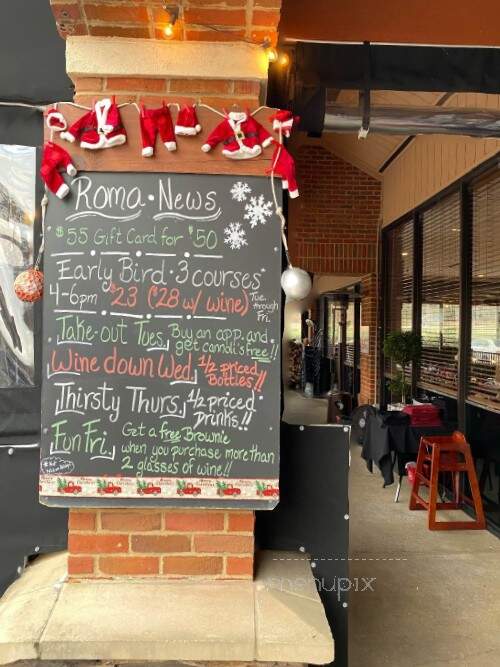 Roma • News
$55 Gift Card for $50
Early Bird • 3 courses*
4-6pm $23 ($28 w/ wine) Tue. through Fri.
Take-out Tues. Buy an app. and
get cannoli's free!!
Wine down Wed. 1/2 priced
Bottles!!
Thirsty Thurs. 1/2 priced
Drinks!!
Fun Fri. Get a free Brownie
when you purchase more than
2 glasses of wine!!
menupix